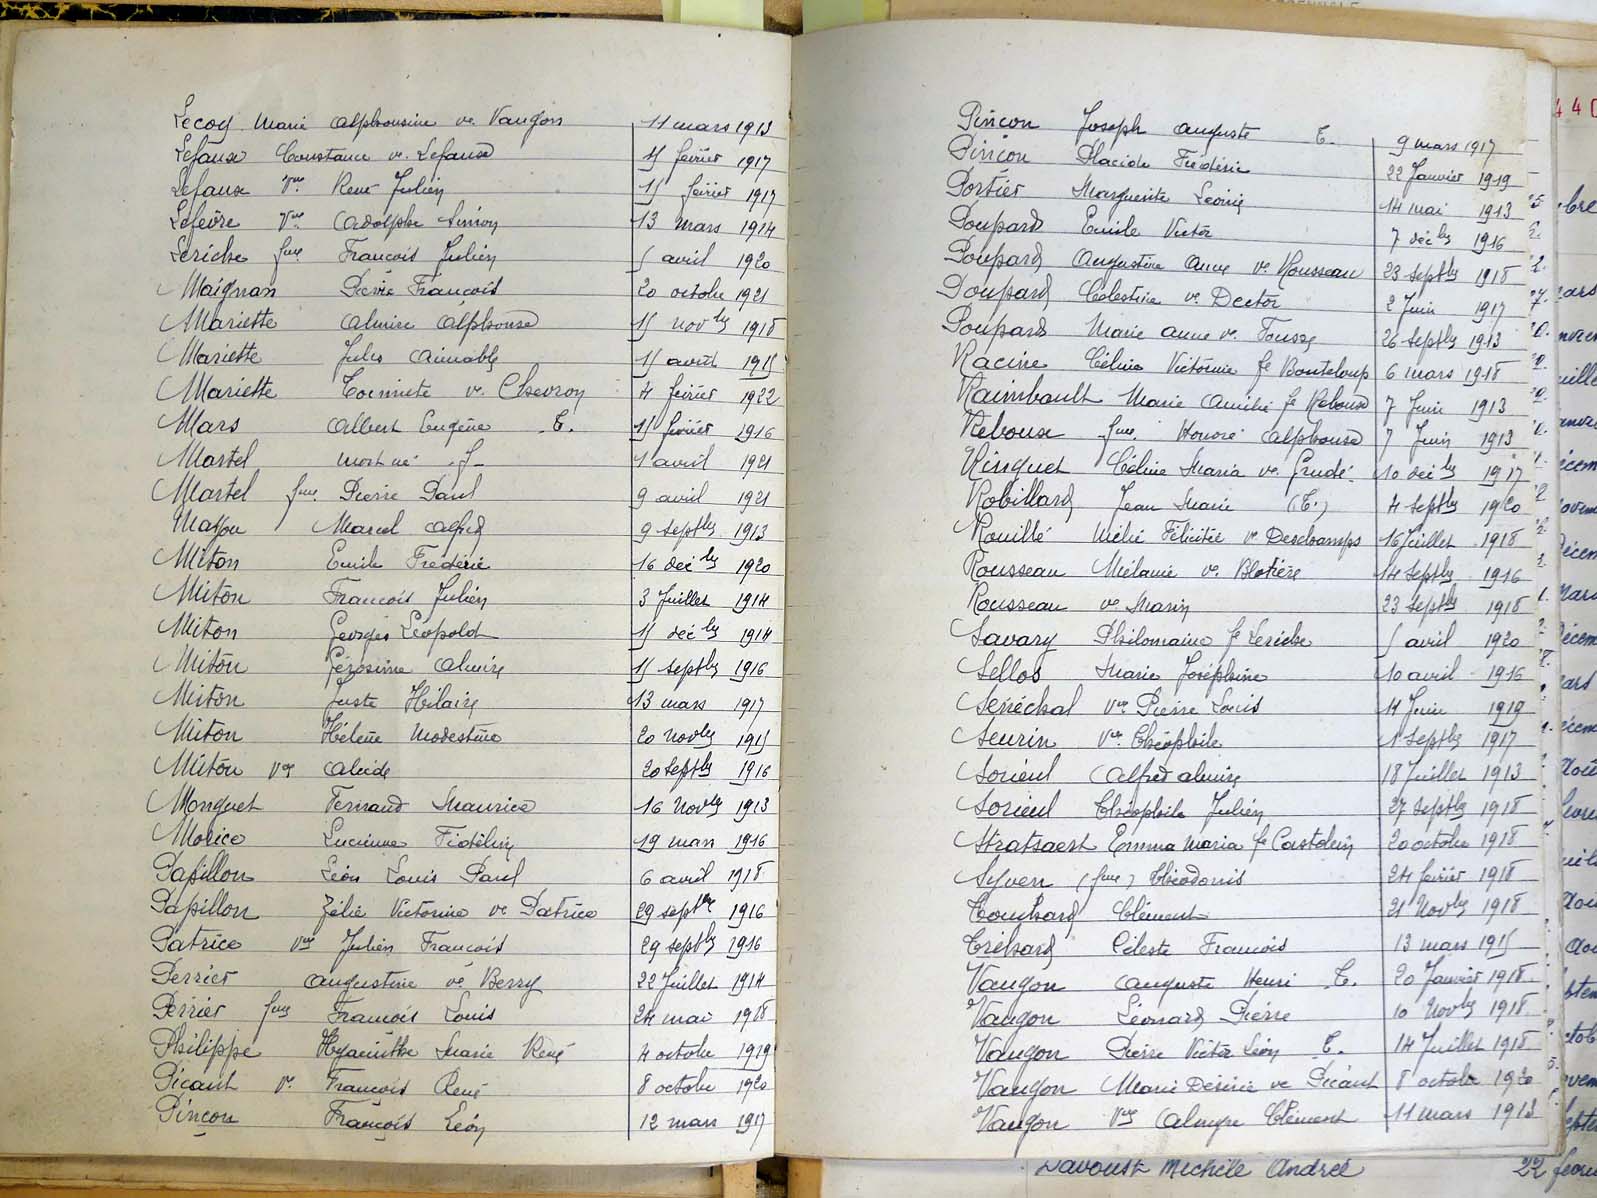 Lecoq Marie Alphonsine ve Vaugon 11 mars 1913
Lefaux Constance ve Lefaux 15 février 1917
Lefaux Vve René Julien 15 février 1917
Lefèvre Vve Adolphe Siméon 13 mars 1914
Leriche fme François Julien 5 avril 1920
Maignan Pierre François 20 octobre 1921
Mariette Almire Alphonse 15 novbre 1918
Mariette Jules Aimable 15 avril 1915
Mariette ve Chevron 4 février 1922
Mars Albert Eugène T. 15 février 1916
Martel mort né .f. 1 avril 1921
Martel fme Pierre Paul 9 avril 1921
Marcel Alfred 9 Septbre 1913
Miton Emile Frédéric 16 décbre 1920
Miton François Julien 3 Juillet 1914
Miton Georges Léopold 15 décbre 1914
Miton Gérosime Almire 15 Septbre 1916
Miton Juste Hilaire 13 mars 1917
Miton Hélène Modestine 20 Novbre 1915
Miton Vve Alcide 20 Septbre 1916
Monguet Fernand Maurice 16 Novbre 1913
Morice Lucienne Fidéline 19 mars 1916
Papillon Léon Louis Paul 6 avril 1918
Papillon Zélie Victorine ve Patrice 29 septbre 1916
Patrice Vve Julien François 29 septbre 1916
Perrier Augustine ve Berry 22 Juillet 1914
Perrier fme François Louis 24 mai 1918
Philippe Hyacinthe Marie René 4 octobre 1919
Picant ve François René 8 octobre 1920
Pinçon François Léon 12 mars 1917
Pinçon Joseph Auguste T. 9 mars 1917
Pinçon Placide Frédéric 22 Janvier 1919
Portier Marguerite Léonie 14 mai 1913
Poupard Emile Victor 7 décbre 1916
Poupard Augustine Anne ve Rousseau 23 Septbre 1918
Poupard Célestine ve Dector 2 Juin 1917
Poupard Marie Anne ve Fousse 26 Septbre 1913
Racine Célina Victorine fe Bouteloup 6 mars 1918
Raimbault Marie Amélie fe Reboux 7 Juin 1913
Reboux fme Honoré Alphonse 7 Juin 1913
Ringuet Céline Maria ve Grudé 10 décbre 1917
Robillard Jean Marie (T.) 4 Septbre 1920
Rouillé Mélie Félicité ve Deschamps 16 Juillet 1918
Rousseau Mélanie ve Blotière 14 Septbre 1916
Rousseau ve Marin 23 Septbre 1918
Savary Philomaine fe Leriche 5 avril 1920
Sellos Marie Joséphine 10 avril 1916
Sénéchal Vve Pierre Louis 14 Juin 1919
Seurin Vve Théophile 1 Septbre 1917
Sorieul Alfred Almire 18 Juillet 1913
Sorieul Théophile Julien 27 Septbre 1918
Stratsaest Emma Maria fe Castelein 20 octobre 1918
Syven (fme) Théodonis 24 février 1918
Touchard Clément 21 Novbre 1918
Tréhard Céleste François 13 mars 1915
Vaugon Auguste Henri T. 20 Janvier 1918
Vaugon Léonard Pierre 10 Novbre 1918
Vaugon Pierre Victor Léon T. 14 Juillet 1918
Vaugon Marie Désirée ve Picant 8 octobre 1920
Vaugon Vve Almyre Clément 11 mars 1913
Davoust Michèle Andrée 22